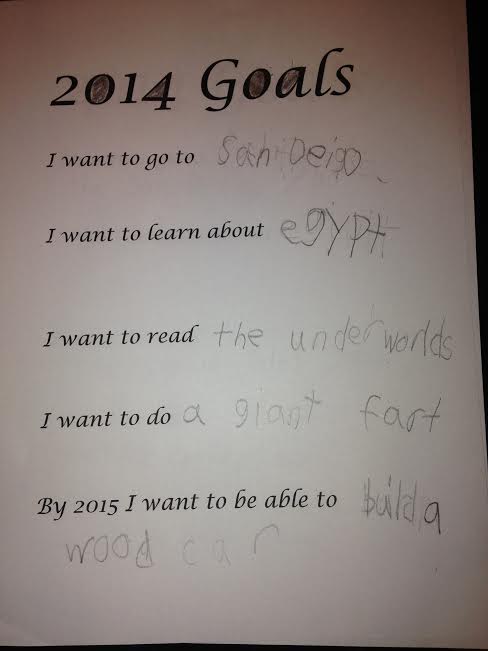 2014 Goals
I want to go to San Deigo
I want to learn about egypt
I want to read the underworlds
I want to do a giant fart
By 2015 I want to be able to build a
wood car